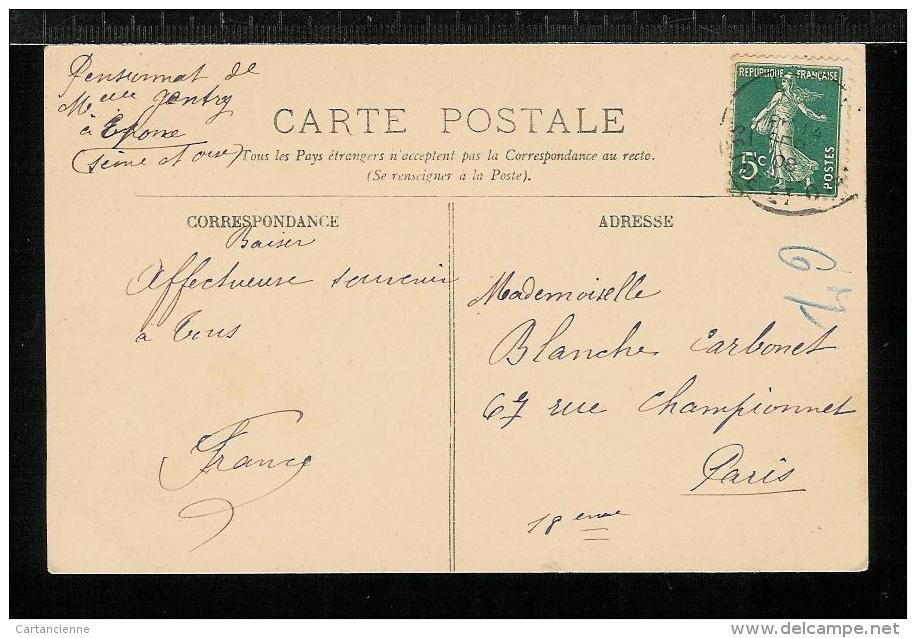 Pensionnat de
Melle Gentry
à Epone
(Seine et Oise)
CARTE POSTALE
Tous les Pays étrangers n'acceptent pas la Correspondance au recto.
(Se renseigner à la Poste).
REPUBLIQUE FRANÇAISE
5c
POSTES
CORRESPONDANCE
Baiser
Affectueuse souvenir
à tous
France
ADRESSE
Mademoiselle
Blanche Carbonet
67 rue Championnet
Paris
18 eme
Cartancienne
www.delcampe.net